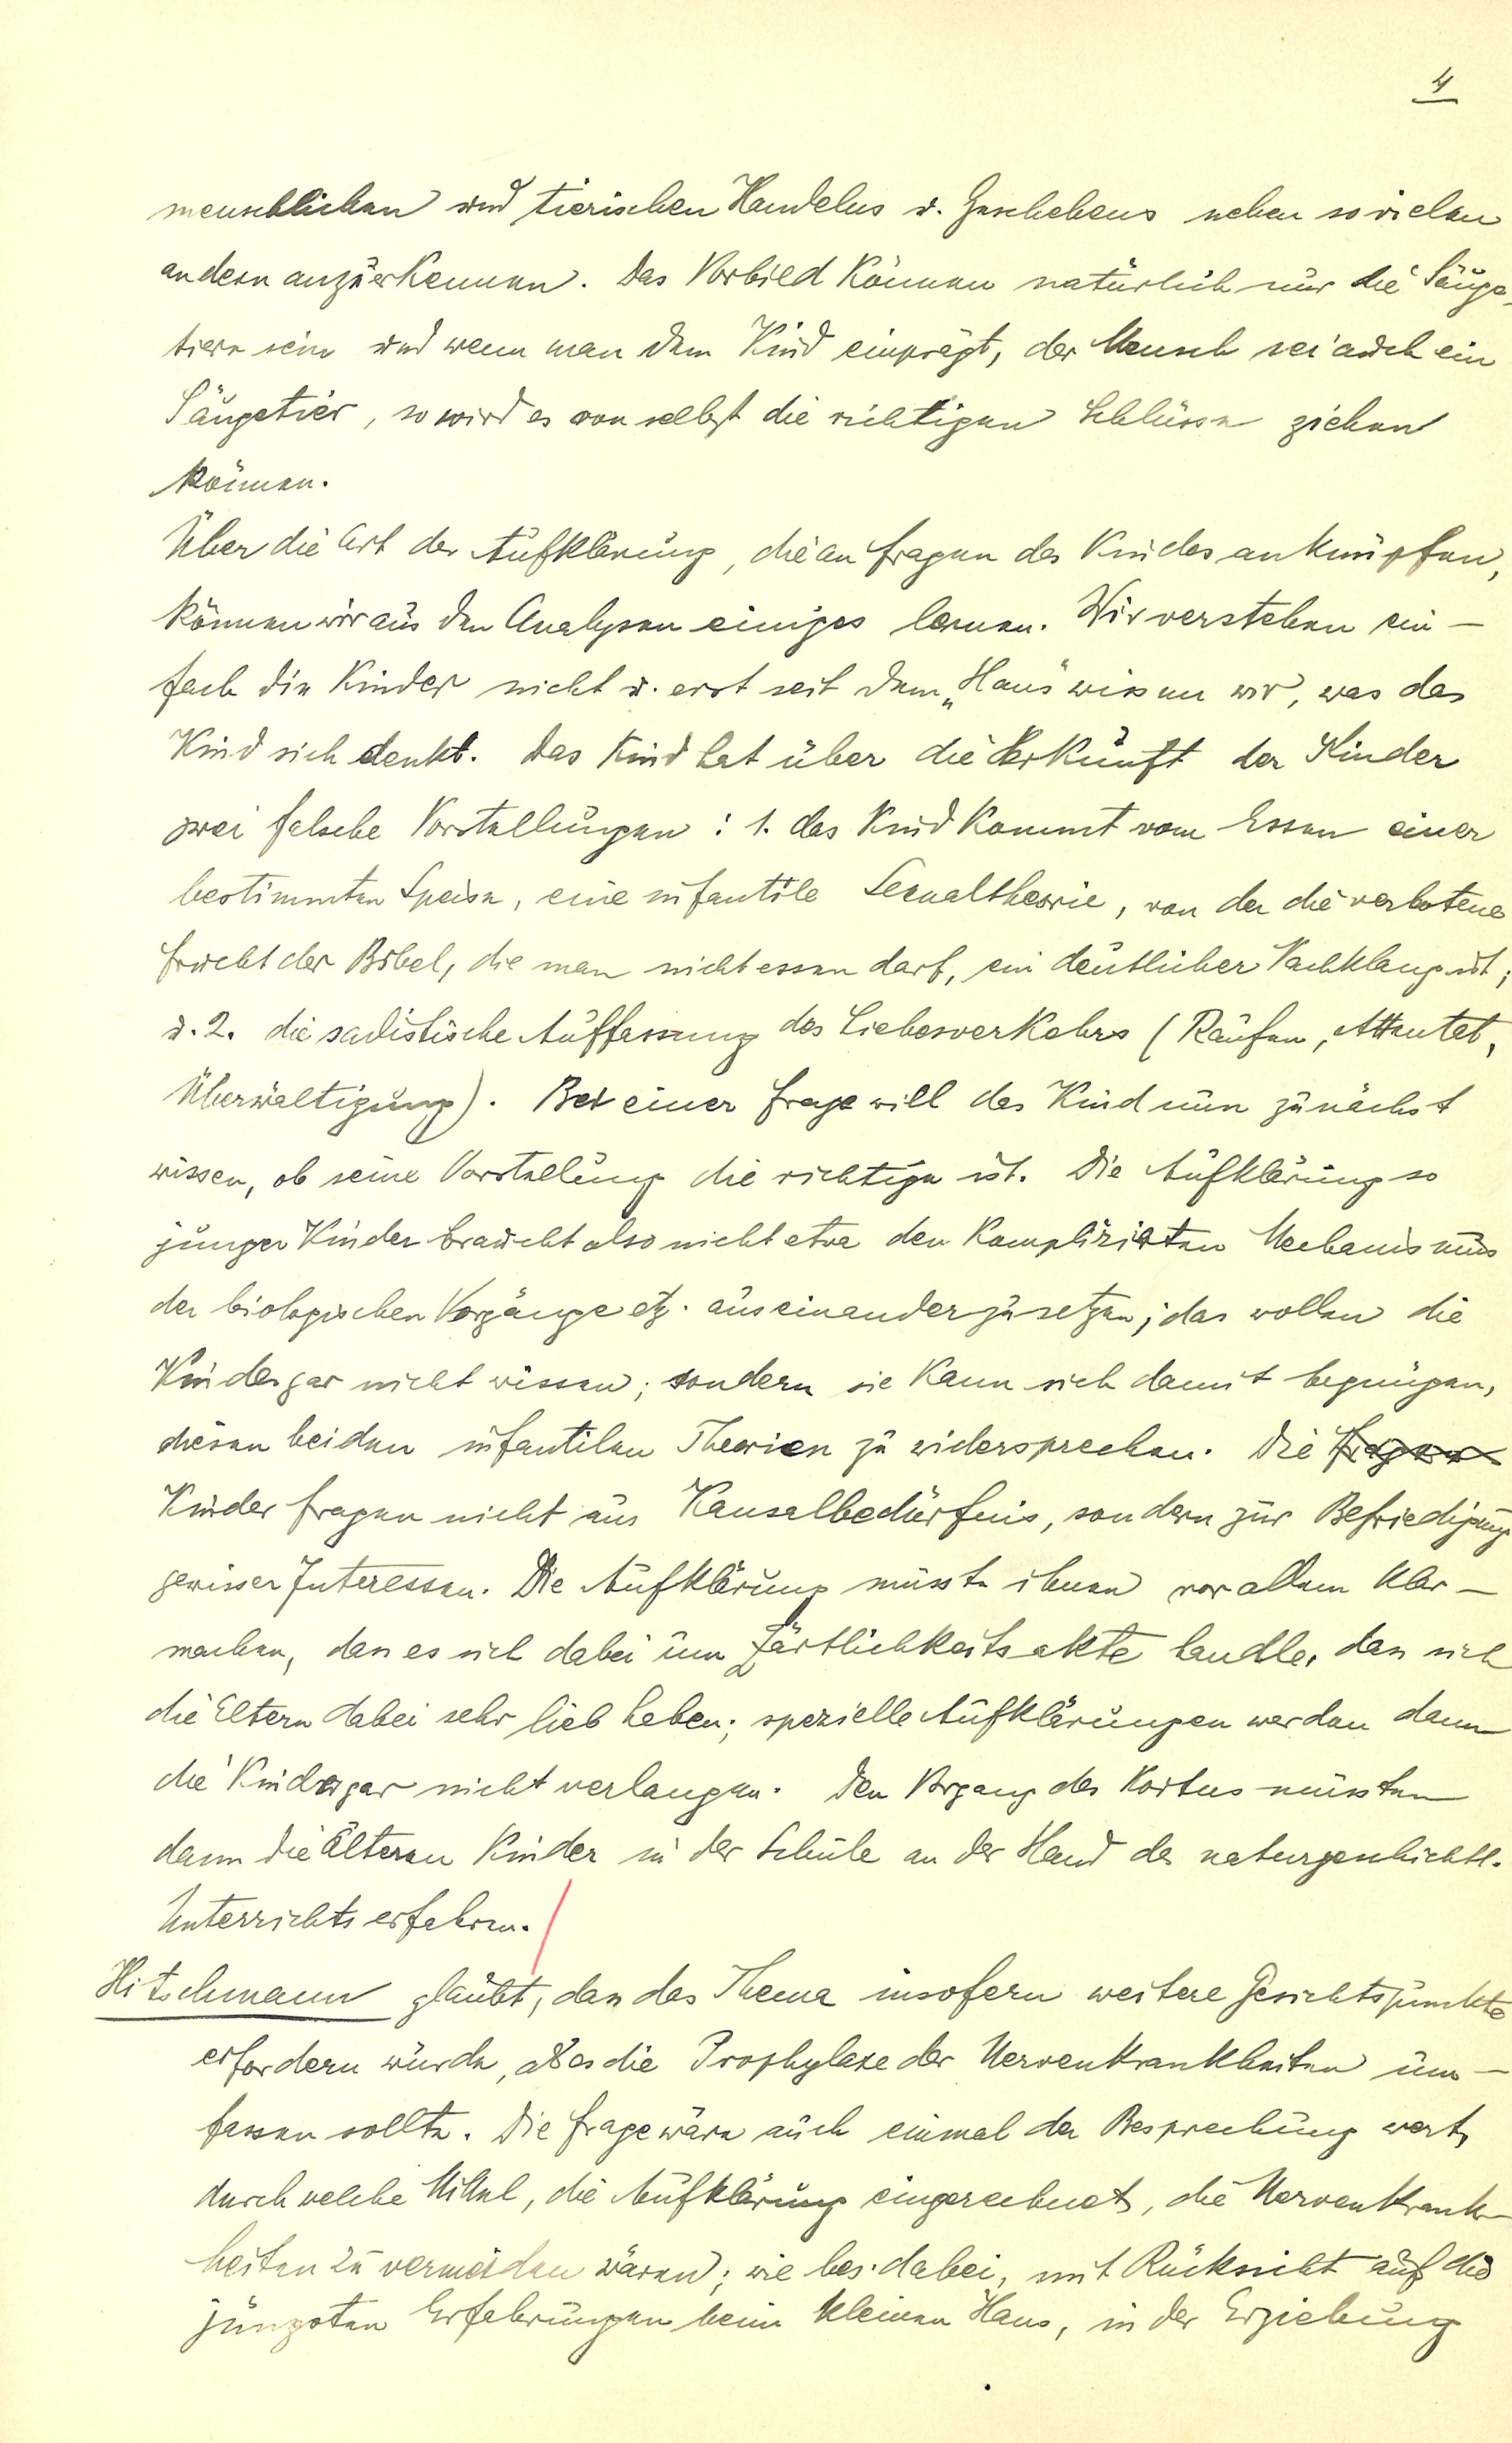 4
menschlichen und tierischen Handelns u. Geschehens neben so vielen
andern anzuerkennen. Das Vorbild können natürlich nur die Säuge-
tiere sein und wenn man dem Kind einprägt, der Mensch sei auch ein
Säugetier, so wird es von selbst die richtigen Schlüsse ziehen
können.
Über die Art der Aufklärung, die an Fragen des Kindes anknüpfen,
können wir aus den Analysen einiges lernen. Wir verstehen ein-
fach die Kinder nicht u. erst seit dem „Hans" wissen wir, was das
Kind sich denkt. Das Kind hat über die Herkunft der Kinder
zwei falsche Vorstellungen: 1. das Kind kommt vom Essen einer
bestimmten Speise, eine infantile Sexualtheorie, von der die verbotene
Frucht der Bibel, die man nicht essen darf, ein deutlicher Nachklang ist;
u. 2. die sadistische Auffassung des Liebesverkehrs (Raufen, Attentat,
Überwältigung). Bei einer Frage will das Kind nun zunächst
wissen, ob seine Vorstellung die richtige ist. Die Aufklärung so
junger Kinder braucht also nicht etwa den komplizierten Mechanismus
der biologischen Vorgänge etz. auseinanderzusetzen; das wollen die
Kinder gar nicht wissen; sondern sie kann sich damit begnügen,
diesen beiden infantilen Theorien zu widersprechen. Die Fragen
Kinder fragen nicht aus Kausalbedürfnis, sondern zur Befriedigung
gewisser Interessen. Die Aufklärung müsste ihnen vor allem klar-
machen, dass es sich dabei um Zärtlichkeitsakte handle, dass sich
die Eltern dabei sehr lieb haben; spezielle Aufklärungen werden dann
die Kinder gar nicht verlangen. Den Vorgang des Koitus müssten
dann die älteren Kinder in der Schule an der Hand des naturgeschichtl.
Unterrichts erfahren.
Hitschmann glaubt, dass das Thema insofern weitere Gesichtspunkte
erfordern würde, als es die Prophylaxe der Nervenkrankheiten um-
fassen sollte. Die Frage wäre auch einmal der Besprechung wert,
durch welche Mittel, die Aufklärung eingerechnet, die Nervenkrank-
heiten zu vermeiden wären; wie bes. dabei, mit Rücksicht auf die
jüngsten Erfahrungen beim kleinen Hans, in der Erziehung